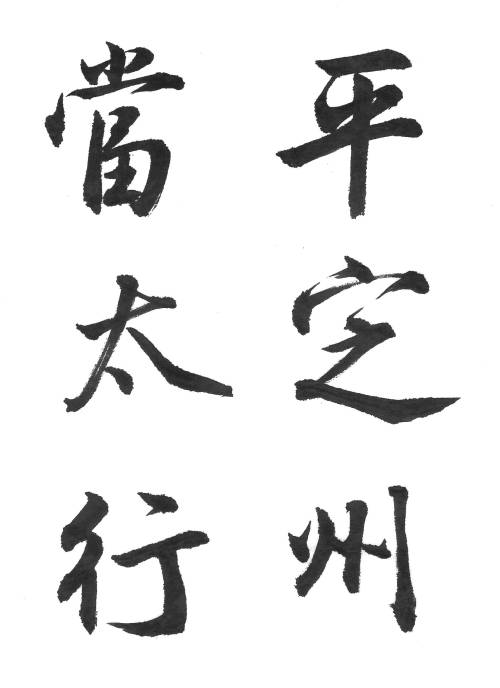 平定州
當太行